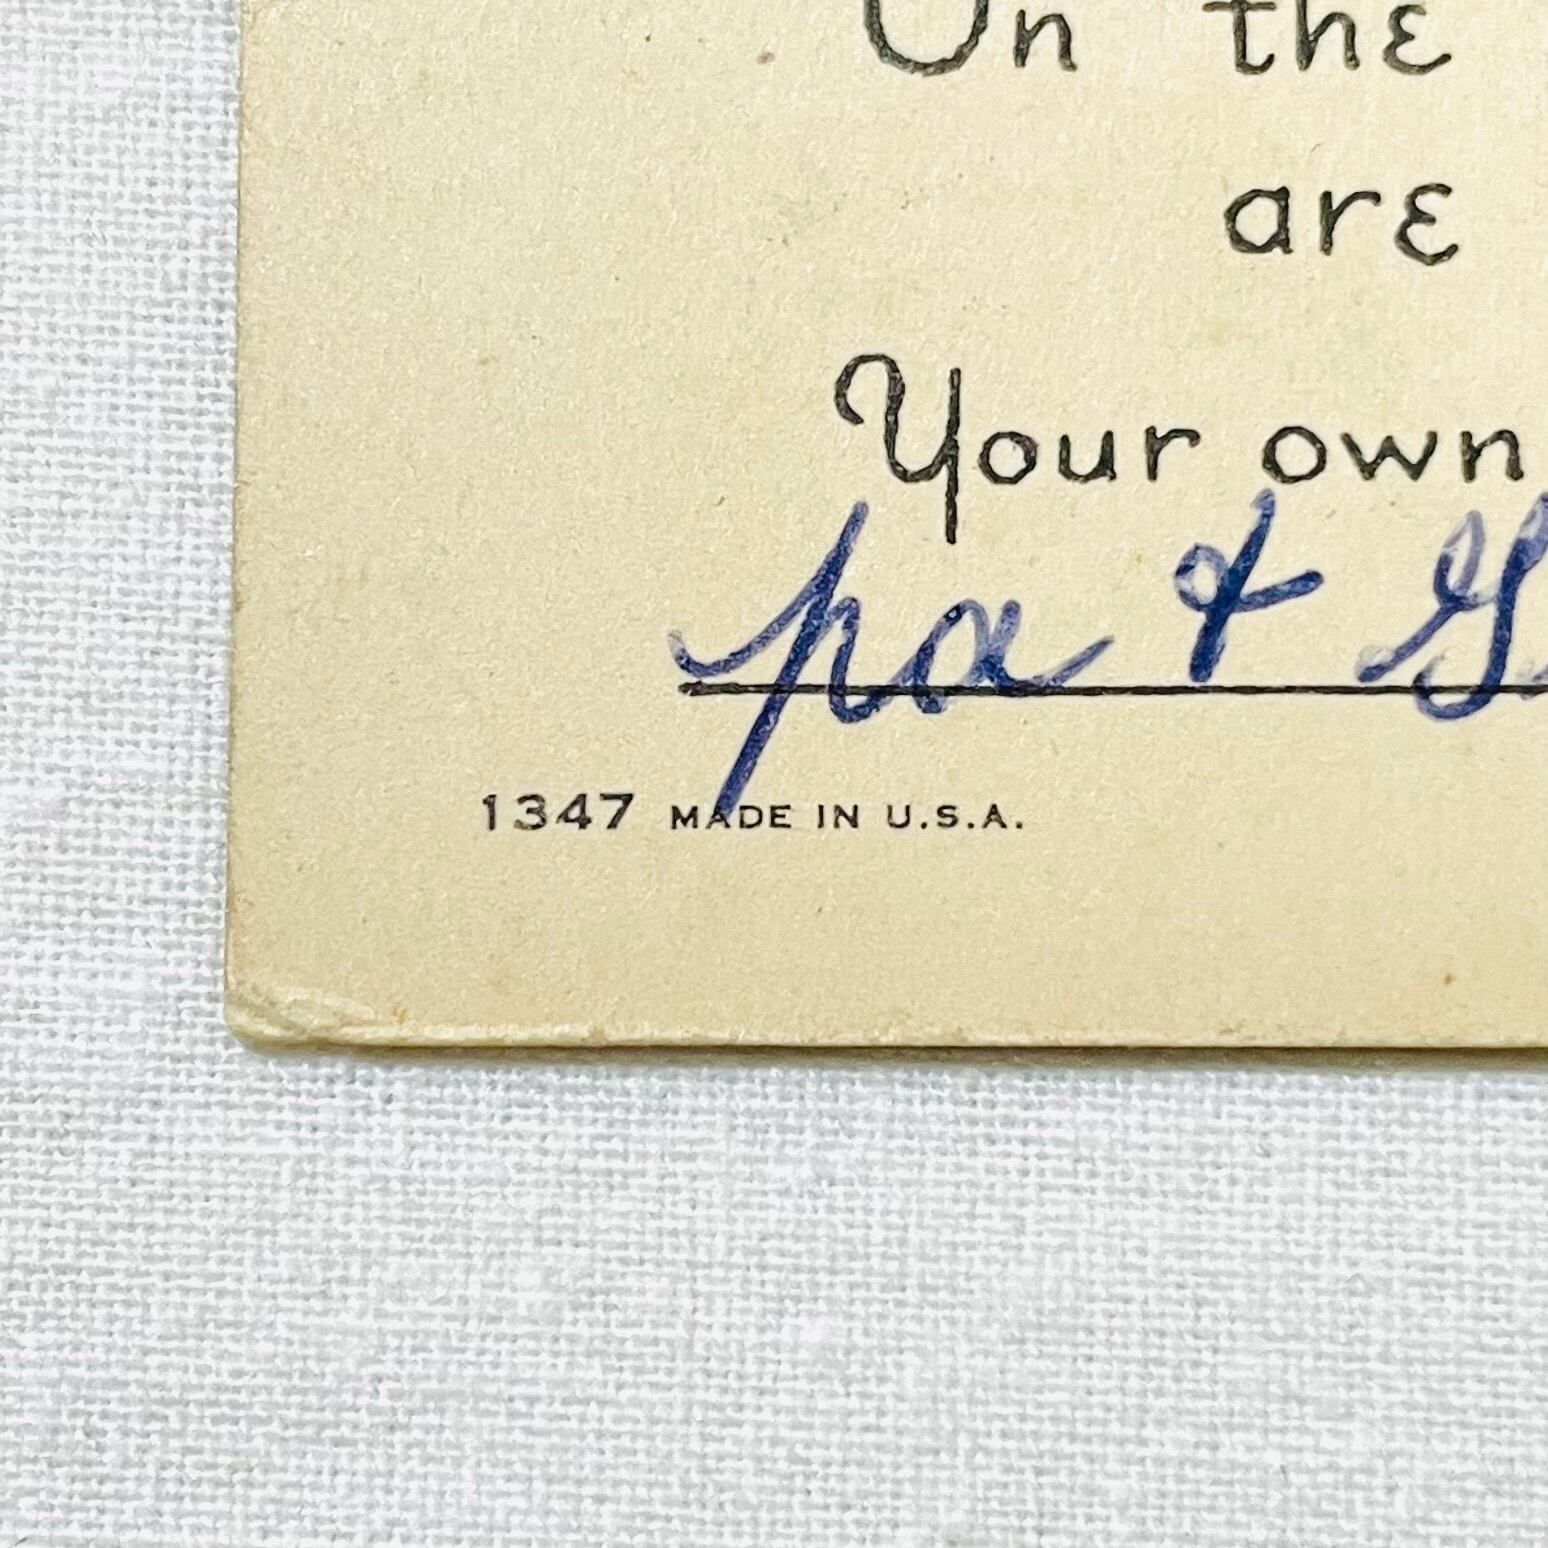 On the
are
Your own
pa &
1347 MADE IN U.S.A.